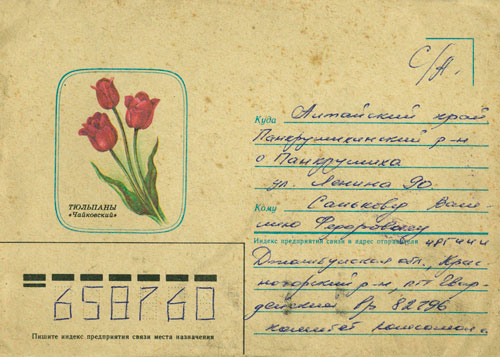 С/А.
ТЮЛЬПАНЫ
«Чайковский»
Куда Алтайский край
Панкрушихинский р-н
с Панкрушиха
ул. Ленина 90.
Кому Санькову Васи-
лию Федоровичу
Индекс предприятия связи и адрес отправителя
Джамбулская обл., Крас-
ногорский р-н, пгт Гвар-
дейский в/ч 82796
комитет комсомола
658760
Пишите индекс предприятия связи места назначения